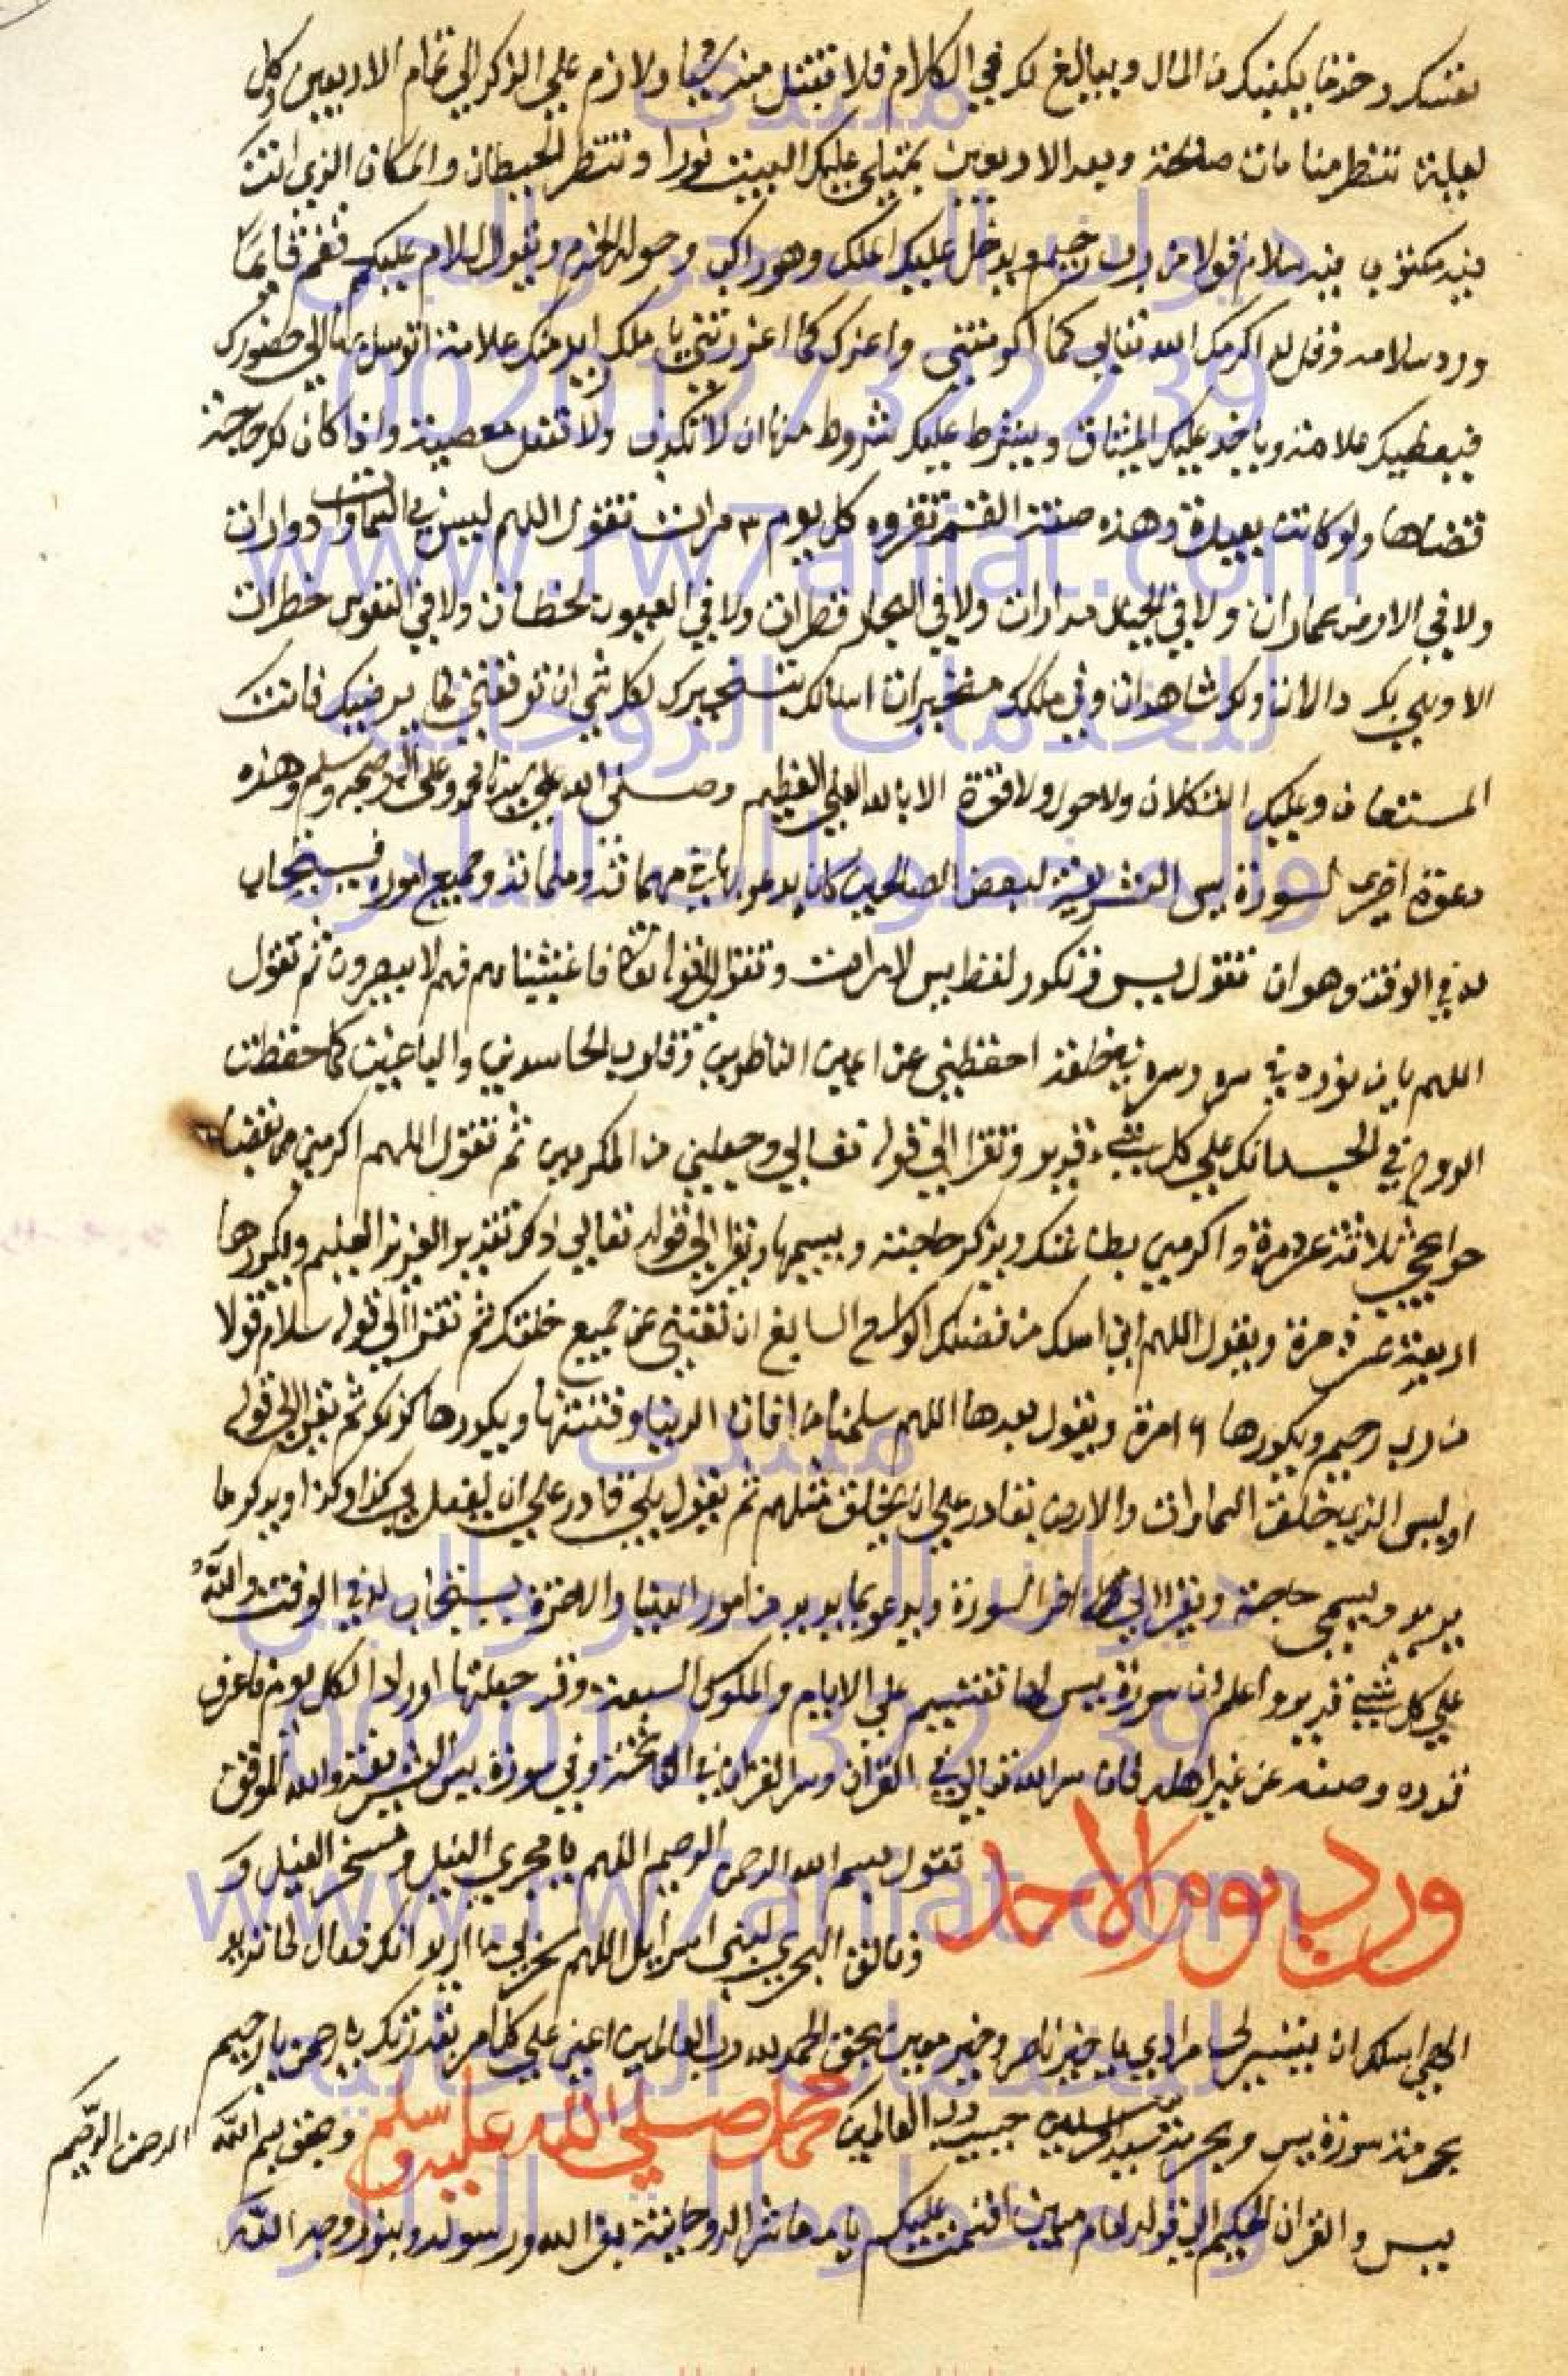 نفسك وخذ ما يكفيك من المال ويبالغ لك في الكلام فلا تقبل منه شيا ولازم علي الذكر الي تمام الاربعين وكل
ليلة تنظر منامات صالحة وبعد الاربعين يمتلي عليك البيت نورا وتنظر الحيطان والمكان الذي انت
فيه مكتوب فيه سلام قولا من رب رحيم ويدخل عليك الملك وهو راكب وحوله الخدم ويقول السلام عليكم فقم قايما
ورد سلامه وقل له اكرمك الله تعالي كما اكرمتني واعزك كما اعززتني يا ملك اريد منك علامة اتوسل بها الي حضورك
فيعطيك علامة وياخذ عليك الميثاق ويشرط عليك شروط منها ان لا تكذب ولا تفعل معصية واذا كان لك حاجة
قضاها ولو كانت بعيدة وهذه صفة القسم تقروه كل يوم ٣ مرات تقول اللهم ليس في السماوات دوارات
ولا في الارض عمارات ولا في الجبل مدارات ولا في البحار قطرات ولا في العيون لحظات ولا في النفوس خطرات
الا وهي بك دالات ولك شاهدات وفي ملكك مسخرات اسالك بتسخيرك لكل شي ان توفقني لما يرضيك فانت
المستعان وعليك التكلان ولا حول ولا قوة الا بالله العلي العظيم وصلي الله علي سيدنا محمد وعلى اله وصحبه وسلم وهذه
دعوة اخري لسورة يس الشريفة لبعض الصالحين كان يدعو بها في مهماته وملماته وجميع اموره فيستجاب
له في الوقت وهو ان تقول يس وتكرر لفظ يس مرات وتقرا الي قوله تعالى فاغشيناهم فهم لا يبصرون ثم تقول
اللهم يا من نوره في سره وسره في خلقه احفظني عن اعين الناظرين وقلوب الحاسدين والباغين كما حفظت
الروح في الجسد انك علي كل شيء قدير وتقرا الي قوله تعالي وجعلني من المكرمين ثم تقول اللهم اكرمني بقضاء
حوايجي ثلاثة عشر مرة واكرمني بطاعتك ويذكر حاجته ويسميها وتقرا الي قوله تعالي ذلك تقدير العزيز العليم ويكررها
اربعة عشر مرة ويقول اللهم اني اسلك من فضلك الواسع السابغ ان تغنيني عن جميع خلقك ثم تقرا الي قوله سلام قولا
من رب رحيم ويكررها ١٦ مرة ويقول بعدها اللهم سلمنا من افات الدنيا وفتنتها ويكررها كذلك ثم يقرا الي قوله
اوليس الذي خلق السماوات والارض بقادر علي ان يخلق مثلهم ثم يقول بلي قادر علي ان يفعل لي كذا وكذا ويذكر ما
يريد ويسمي حاجته ويقرا الي اخر السورة ويدعو بما يريد من امور الدنيا والاخرة يستجاب له في الوقت والله
علي كل شي قدير واعلم ان سورة يس لها تقسيم علي الايام والملوك السبعة وقد جعلتها اوراد لكل يوم فاعرف
قدره وصنه عن غير اهله فان سر الله تعالي في القران وسر القران في الفاتحة وفي سورة يس الشريفة والله الموفق
ورد يوم الاحد تقول بسم الله الرحمن الرحيم اللهم يا مجري النيل ومسخر الفيل و
وفالق البحر لبني اسرايل اللهم سخر لي ما اريد انك فعال لما تريد
الهي اسلك ان تيسر لي مرادي يا خير ناصر وخير معين بحق الحمد لله رب العالمين اعني علي كل امر بقدرتك يا رحمن يا رحيم
بحرمة سورة يس وبحرمة سيد المرسلين حبيب رب العالمين محمد صلي الله عليه وسلم وبحق بسم الله الرحمن الرحيم
يس والقران الحكيم الي قوله امام مبين اقسمت عليكم يا معاشر الروحانية بقرالله ورسوله وبنور وجه الله
منتدى
ديوان السحر والجن
00201273722239
www.rw7aniat.com
للخدمات الروحانية
والمخطوطات النادرة
منتدى
ديوان السحر والجن
00201273722239
www.rw7aniat.com
للخدمات الروحانية
والمخطوطات النادرة